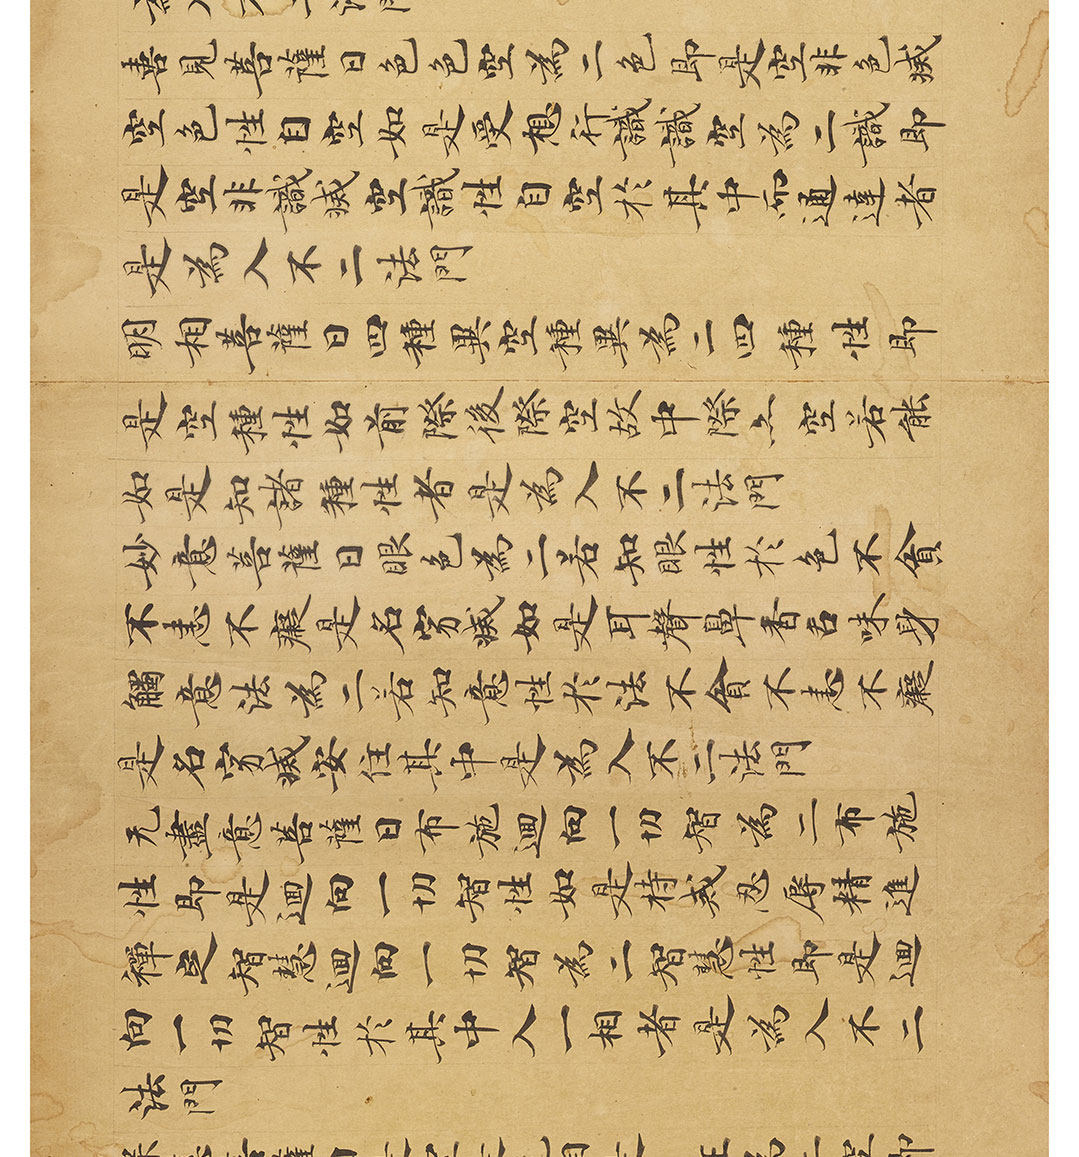 喜見菩薩曰色色空為二色即是空非色滅
空色性自空如是受想行識識空為二識即
是空非識滅空識性自空於其中而通達者
是為入不二法門
明相菩薩曰四種異空種異為二四種性即
是空種性如前際後際空故中際亦空若能
如是知諸種性者是為入不二法門
妙意菩薩曰眼色為二若知眼性於色不貪
不恚不癡是名寂滅如是耳聲鼻香舌味身
觸意法為二若知意性於法不貪不恚不癡
是名寂滅安住其中是為入不二法門
无盡意菩薩曰布施迴向一切智為二布施
性即是迴向一切智性如是持戒忍辱精進
禪定智慧迴向一切智為二智慧性即是迴
向一切智性於其中入一相者是為入不二
法門